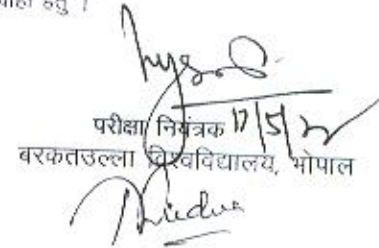 हेतु ।
परीक्षा नियंत्रक 17/5/22
बरकतउल्ला विश्वविद्यालय, भोपाल